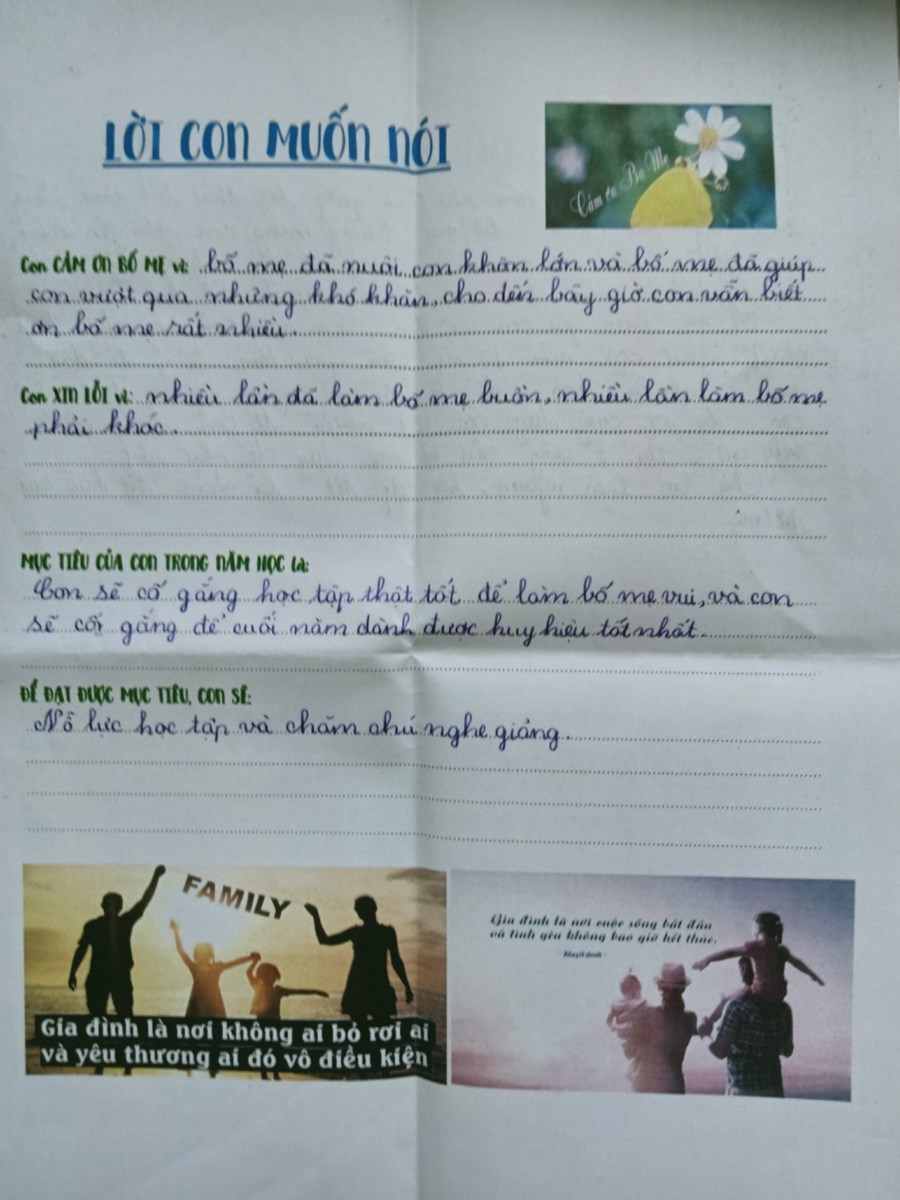 LỜI CON MUỐN NÓI
Cảm ơn Ba Mẹ
Con CẢM ƠN BỐ MẸ vì: bố mẹ đã nuôi con khôn lớn và bố mẹ đã giúp
con vượt qua những khó khăn, cho đến bây giờ con vẫn biết
ơn bố mẹ rất nhiều.
Con XIN LỖI vì: nhiều lần đã làm bố mẹ buồn, nhiều lần làm bố mẹ
phải khóc.
MỤC TIÊU CỦA CON TRONG NĂM HỌC là:
Con sẽ cố gắng học tập thật tốt để làm bố mẹ vui, và con
sẽ cối gắng để cuối năm dành được huy hiệu tốt nhất.
ĐỂ ĐẠT ĐƯỢC MỤC TIÊU, CON SẼ:
Nỗ lực học tập và chăm chú nghe giảng.
FAMILY
Gia đình là nơi không ai bỏ rơi ai
và yêu thương ai đó vô điều kiện
Gia đình là nơi cuộc sống bắt đầu
và tình yêu không bao giờ kết thúc.